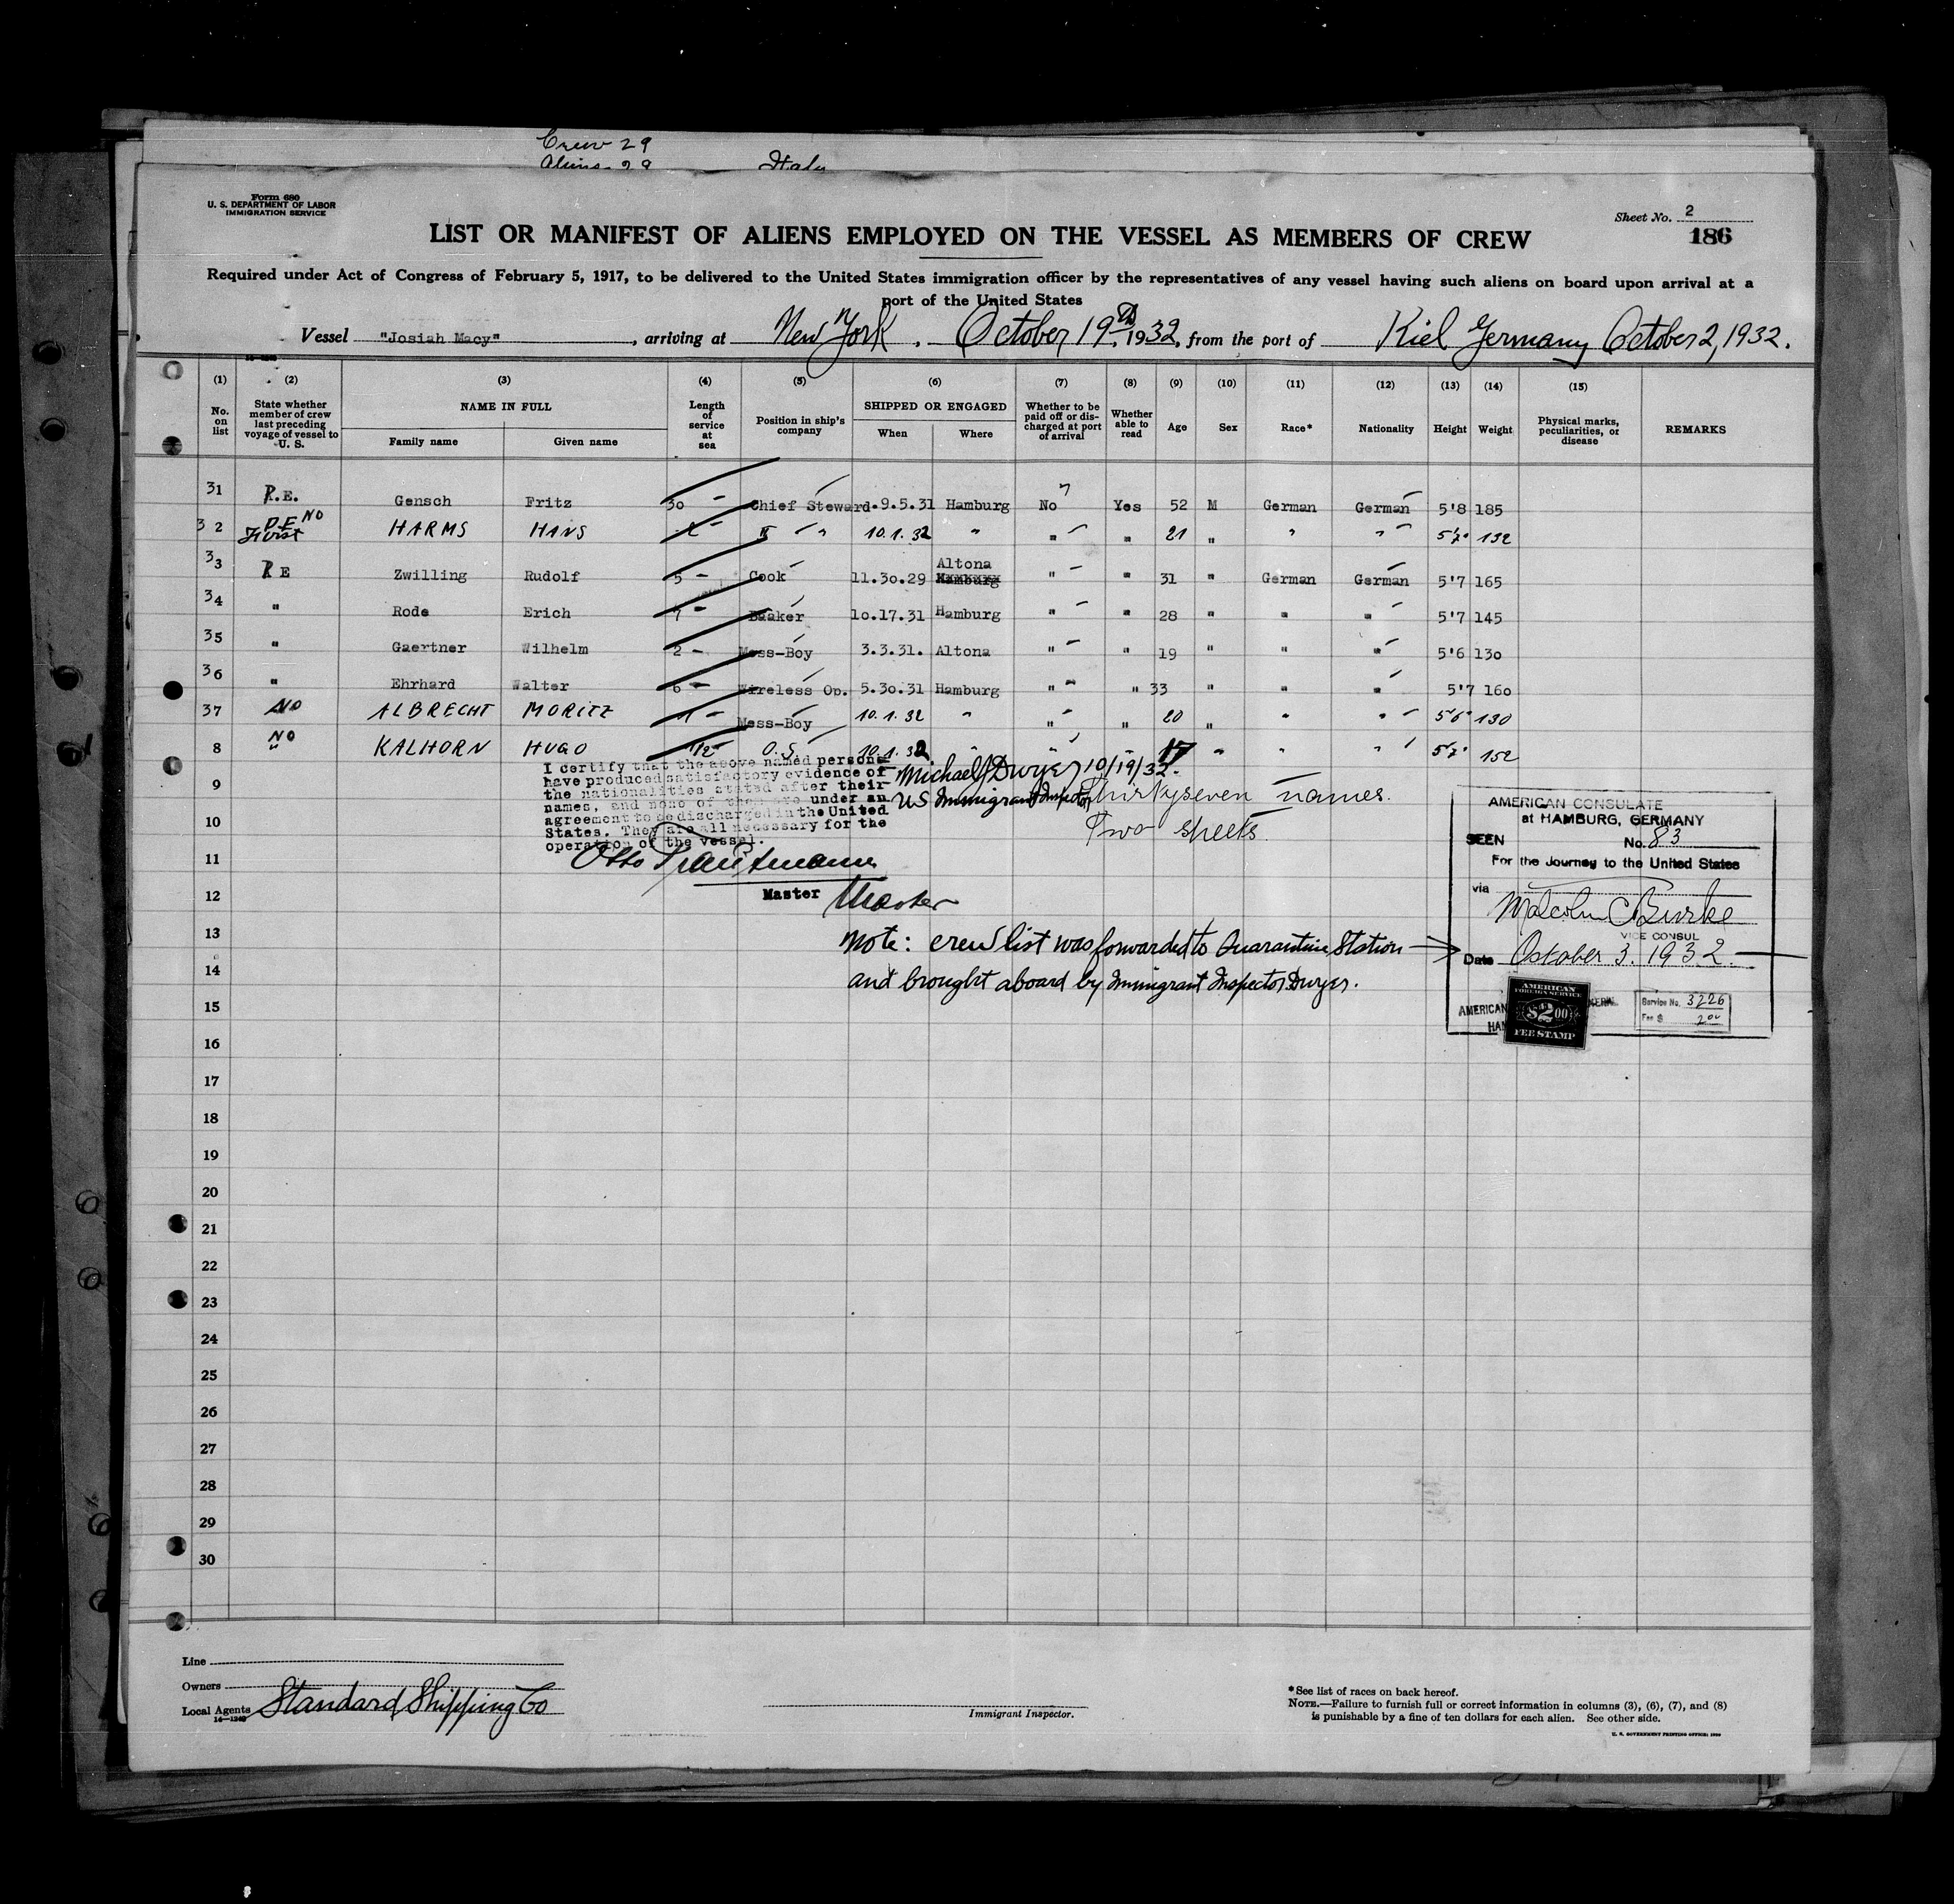 Crew 29
Aliens 29 Italy
Form 680
U. S. DEPARTMENT OF LABOR
IMMIGRATION SERVICE
Sheet No. 2
186
LIST OR MANIFEST OF ALIENS EMPLOYED ON THE VESSEL AS MEMBERS OF CREW
Required under Act of Congress of February 5, 1917, to be delivered to the United States immigration officer by the representatives of any vessel having such aliens on board upon arrival at a
port of the United States
Vessel "Josiah Macy", arriving at New York. October 19th 1932, from the port of Kiel Germany October 2, 1932.
(1) (2) (3) (4) (5) (6) (7) (8) (9) (10) (11) (12) (13) (14) (15)
No. on list
State whether member of crew last preceding voyage of vessel to U. S.
NAME IN FULL
Family name Given name
Length of service at sea
Position in ship's company
SHIPPED OR ENGAGED
When Where
Whether to be paid off or discharged at port of arrival
Whether able to read
Age Sex Race* Nationality Height Weight
Physical marks, peculiarities, or disease
REMARKS
31 R.E. Gensch Fritz 30 Chief Steward 9.5.31 Hamburg No Yes 52 M German German 5'8 185
32 NO First HARMS HANS " " 10.1.32 " " " 21 " " " 5'7" 132
33 RE Zwilling Rudolf 5 Cook 11.30.29 Altona Hamburg " " 31 " German German 5'7 165
34 " Rode Erich 7 Baaker 10.17.31 Hamburg " " 28 " " " 5'7 145
35 " Gaertner Wilhelm 2 Mess-Boy 3.3.31. Altona " " 19 " " " 5'6 130
36 " Ehrhard Walter 6 Wireless Op. 5.30.31 Hamburg " " 33 " " " 5'7 160
37 NO ALBRECHT MORITZ 1 Mess-Boy 10.1.32 " " " 20 " " " 5'6" 130
8 NO " KALHORN HUGO 1/2 O.S. 10.1.32 " " " 17 " " " 5'7" 152
I certify that the above named persons
have produced satisfactory evidence of
the nationalities stated after their
names, and none of them are under an
agreement to be discharged in the United
States. They are all necessary for the
operation of the vessel.
Michael J Dwyer 10/19/32.
US Immigrant Inspector
Thirtyseven names.
Two sheets.
Otto Trautmann
Master Master
Note: crew list was forwarded to Quarantine Station
and brought aboard by Immigrant Inspector Dwyer.
AMERICAN CONSULATE
at HAMBURG, GERMANY
SEEN No. 83
For the Journey to the United States
via
Malcolm C Burke
VICE CONSUL
Date October 3. 1932
AMERICAN
FOREIGN SERVICE
$2.00
FEE STAMP
AMERICAN
HAM
Service No. 3226
Fee $ 2.00
9
10
11
12
13
14
15
16
17
18
19
20
21
22
23
24
25
26
27
28
29
30
Line
Owners
Local Agents Standard Shipping Co
14—1240
Immigrant Inspector.
*See list of races on back hereof.
NOTE.—Failure to furnish full or correct information in columns (3), (6), (7), and (8)
is punishable by a fine of ten dollars for each alien. See other side.
U. S. GOVERNMENT PRINTING OFFICE: 1930